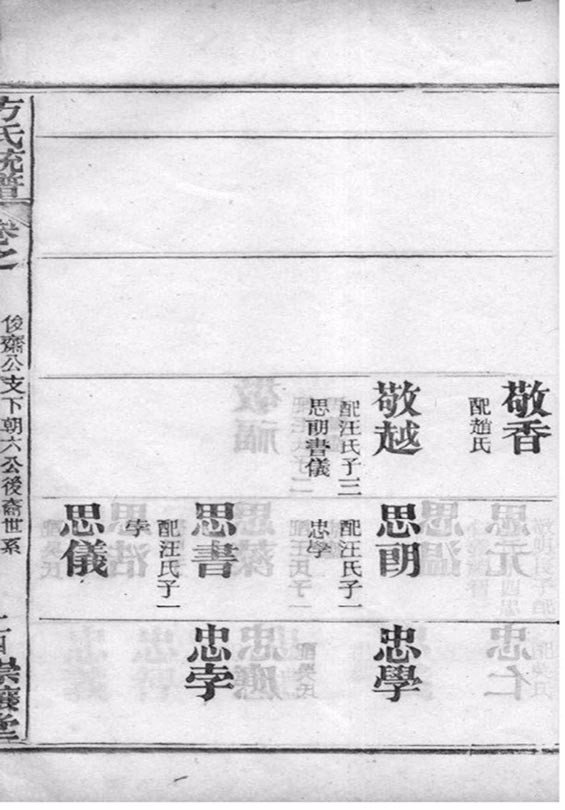 敬香
配趙氏
敬越
配汪氏子三
思朗書儀
思朗
配汪氏子一
忠學
思書
配汪氏子一
思儀
忠學
忠
方氏統譜
卷之
俊齋公支下朝六公後裔世系
崇讓堂